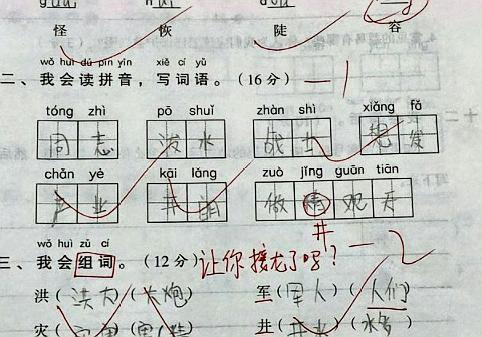 怪 恢 陡 容
wǒ huì dú pīn yīn xiě cí yǔ
二、我会读拼音，写词语。(16分) —1
tóng zhì pō shuǐ zhàn shì xiǎng fǎ
同志 泼水 战士 想发
chǎn yè kāi lǎng zuò jǐng guān tiān
产业 开朗 做 观天
井
wǒ huì zǔ cí
三、我会组词。(12分) 让你接龙了吗？—2
洪( 洪力 )( 火炮 ) 军( 军人 )( 人们 )
灾( ) 井( 井水 )